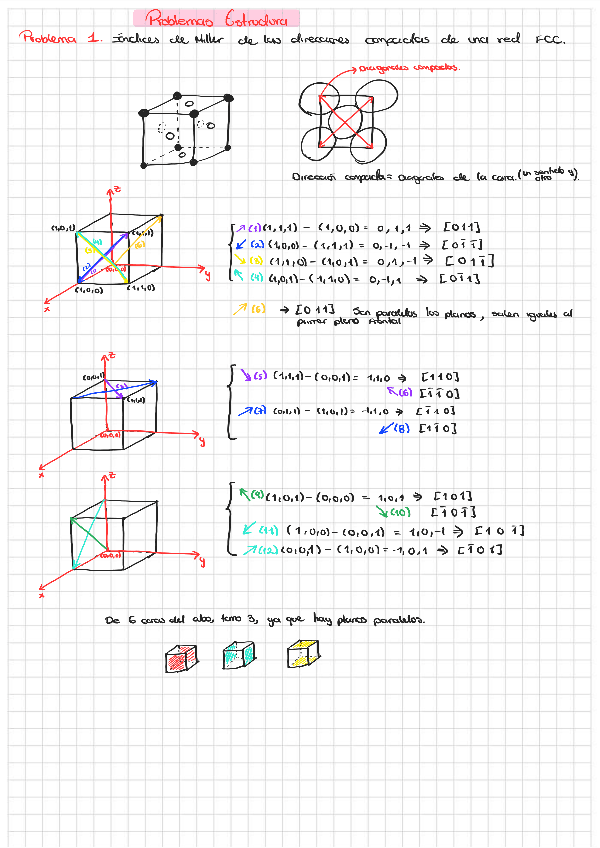 Problemas Estructura
Problema 1. Índices de Miller de las direcciones compactas de una red FCC.
Diagonales compactas.
Dirección compacta = Diagonales de la cara. (un sentido y otro).
z
(1,0,1) (1,1,1)
(4) (6)
(0,0,0)
(1,0,0) (1,1,0)
x
y
(1) (1,1,1) - (1,0,0) = 0,1,1 ⇒ [011]
(2) (1,0,0) - (1,1,1) = 0,-1,-1 ⇒ [01̄1̄]
(3) (1,1,0) - (1,0,1) = 0,1,-1 ⇒ [011̄]
(4) (1,0,1) - (1,1,0) = 0,-1,1 ⇒ [01̄1]
(6) → [011] Son paralelos los planos, salen iguales al
primer plano frontal
z
(0,0,1)
(1,1,1)
(0,0,0)
x
y
(5) (1,1,1) - (0,0,1) = 1,1,0 ⇒ [110]
(6) [1̄1̄0]
(7) (0,1,1) - (1,0,1) = -1,1,0 ⇒ [1̄10]
(8) [11̄0]
z
x
y
(9) (1,0,1) - (0,0,0) = 1,0,1 ⇒ [101]
(10) [1̄01̄]
(11) (1,0,0) - (0,0,1) = 1,0,-1 ⇒ [101̄]
(12) (0,0,1) - (1,0,0) = -1,0,1 ⇒ [1̄01]
De 6 caras del cubo, tomo 3, ya que hay planos paralelos.